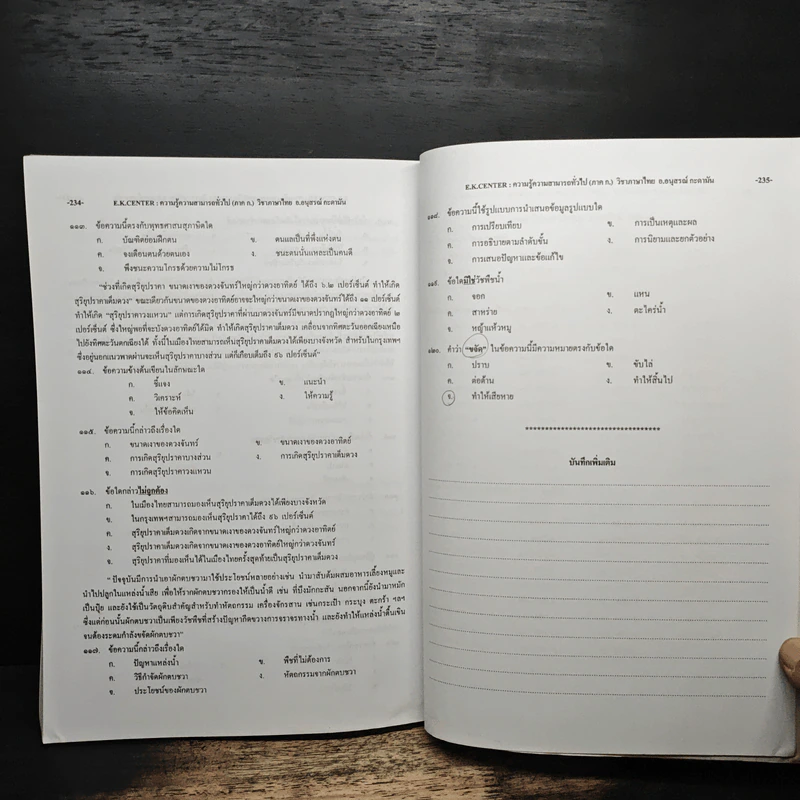 -234- E.K.CENTER : ความรู้ความสามารถทั่วไป (ภาค ก.) วิชาภาษาไทย อ.อนุสรณ์ กะดามัน
๑๑๓. ข้อความนี้ตรงกับพุทธศาสนสุภาษิตใด
ก. บัณฑิตย่อมฝึกตน ข. ตนแลเป็นที่พึ่งแห่งตน
ค. จงเตือนตนด้วยตนเอง ง. ชนะตนนั่นแหละเป็นคนดี
จ. พึงชนะความโกรธด้วยความไม่โกรธ
"ช่วงที่เกิดสุริยุปราคา ขนาดเงาของดวงจันทร์ใหญ่กว่าดวงอาทิตย์ ได้ถึง ๖.๒ เปอร์เซ็นต์ ทำให้เกิด
สุริยุปราคาเต็มดวง" ขณะเดียวกันขนาดของดวงอาทิตย์อาจจะใหญ่กว่าขนาดเงาของดวงจันทร์ได้ถึง ๑๑ เปอร์เซ็นต์
ทำให้เกิด "สุริยุปราคาวงแหวน" แต่การเกิดสุริยุปราคาที่ผ่านมาดวงจันทร์มีขนาดปรากฏใหญ่กว่าดวงอาทิตย์ ๒
เปอร์เซ็นต์ ซึ่งใหญ่พอที่จะบังดวงอาทิตย์ได้มิด ทำให้เกิดสุริยุปราคาเต็มดวง เคลื่อนจากทิศตะวันตกเฉียงเหนือ
ไปยังทิศตะวันตกเฉียงใต้ ทั้งนี้ในเมืองไทยสามารถเห็นสุริยุปราคาเต็มดวงได้เพียงบางจังหวัด สำหรับในกรุงเทพฯ
ซึ่งอยู่นอกแนวพาดผ่านจะเห็นสุริยุปราคาบางส่วน แต่ก็เกือบเต็มถึง ๙๖ เปอร์เซ็นต์"
๑๑๔. ข้อความข้างต้นเขียนในลักษณะใด
ก. ชี้แจง ข. แนะนำ
ค. วิเคราะห์ ง. ให้ความรู้
จ. ให้ข้อคิดเห็น
๑๑๕. ข้อความนี้กล่าวถึงเรื่องใด
ก. ขนาดเงาของดวงจันทร์ ข. ขนาดเงาของดวงอาทิตย์
ค. การเกิดสุริยุปราคาบางส่วน ง. การเกิดสุริยุปราคาเต็มดวง
จ. การเกิดสุริยุปราคาวงแหวน
๑๑๖. ข้อใดกล่าวไม่ถูกต้อง
ก. ในเมืองไทยสามารถมองเห็นสุริยุปราคาเต็มดวงได้เพียงบางจังหวัด
ข. ในกรุงเทพฯสามารถมองเห็นสุริยุปราคาได้ถึง ๙๖ เปอร์เซ็นต์
ค. สุริยุปราคาเต็มดวงเกิดจากขนาดเงาของดวงจันทร์ใหญ่กว่าดวงอาทิตย์
ง. สุริยุปราคาเต็มดวงเกิดจากขนาดเงาของดวงอาทิตย์ใหญ่กว่าดวงจันทร์
จ. สุริยุปราคาที่มองเห็นได้ในเมืองไทยครั้งสุดท้ายเป็นสุริยุปราคาเต็มดวง
" ปัจจุบันมีการนำเอาผักตบชวามาใช้ประโยชน์หลายอย่างเช่น นำมาสับต้มผสมอาหารเลี้ยงหมูและ
นำไปปลูกในแหล่งน้ำเสีย เพื่อให้รากผักตบชวากรองให้เป็นน้ำดี เช่น ที่บึงมักกะสัน นอกจากนี้ยังนำมาหมัก
เป็นปุ๋ย และยังใช้เป็นวัตถุดิบสำคัญสำหรับทำหัตถกรรม เครื่องจักรสาน เช่นกระเป๋า กระบุง ตะกร้า ฯลฯ
ซึ่งแต่ก่อนนั้นผักตบชวาเป็นเพียงวัชพืชที่สร้างปัญหากีดขวางการจราจรทางน้ำ และยังทำให้แหล่งน้ำตื้นเขิน
จนต้องระดมกำลังขจัดผักตบชวา"
๑๑๗. ข้อความนี้กล่าวถึงเรื่องใด
ก. ปัญหาแหล่งน้ำ ข. พืชที่ไม่ต้องการ
ค. วิธีกำจัดผักตบชวา ง. หัตถกรรมจากผักตบชวา
จ. ประโยชน์ของผักตบชวา
E.K.CENTER : ความรู้ความสามารถทั่วไป (ภาค ก.) วิชาภาษาไทย อ.อนุสรณ์ กะดามัน -235-
๑๑๘. ข้อความนี้ใช้รูปแบบการนำเสนอข้อมูลรูปแบบใด
ก. การเปรียบเทียบ ข. การเป็นเหตุและผล
ค. การอธิบายตามลำดับขั้น ง. การนิยามและยกตัวอย่าง
จ. การเสนอปัญหาและข้อแก้ไข
๑๑๙. ข้อใดมิใช่วัชพืชน้ำ
ก. จอก ข. แหน
ค. สาหร่าย ง. ตะไคร่น้ำ
จ. หญ้าแห้วหมู
๑๒๐. คำว่า "ขจัด" ในข้อความนี้มีความหมายตรงกับข้อใด
ก. ปราบ ข. ขับไล่
ค. ต่อต้าน ง. ทำให้สิ้นไป
จ. ทำให้เสียหาย
**********************************
บันทึกเพิ่มเติม